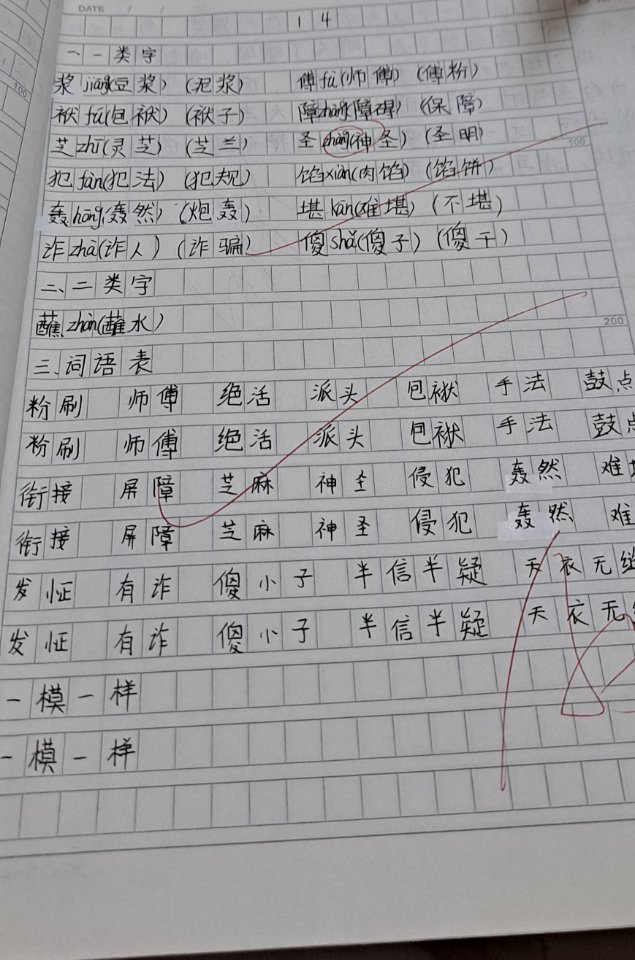 DATE / /
14
一、一类字
浆jiāng(豆浆)(泥浆) 傅fù(师傅)(傅粉)
袱fú(包袱)(袱子) 障zhàng(障碍)(保障)
芝zhī(灵芝)(芝兰) 圣(神圣)(圣明)
100
犯fàn(犯法)(犯规) 馅xiàn(肉馅)(馅饼)
轰hōng(轰然)(炮轰) 堪kān(难堪)(不堪)
诈zhà(诈人)(诈骗) 傻shǎ(傻子)(傻干)
二、二类字
蘸zhàn(蘸水)
200
三、词语表
粉刷 师傅 绝活 派头 包袱 手法 鼓点
粉刷 师傅 绝活 派头 包袱 手法 鼓点
衔接 屏障 芝麻 神圣 侵犯 轰然 难
衔接 屏障 芝麻 神圣 侵犯 轰然 难
发怔 有诈 傻小子 半信半疑 天衣无缝
发怔 有诈 傻小子 半信半疑 天衣无
一模一样
一模一样